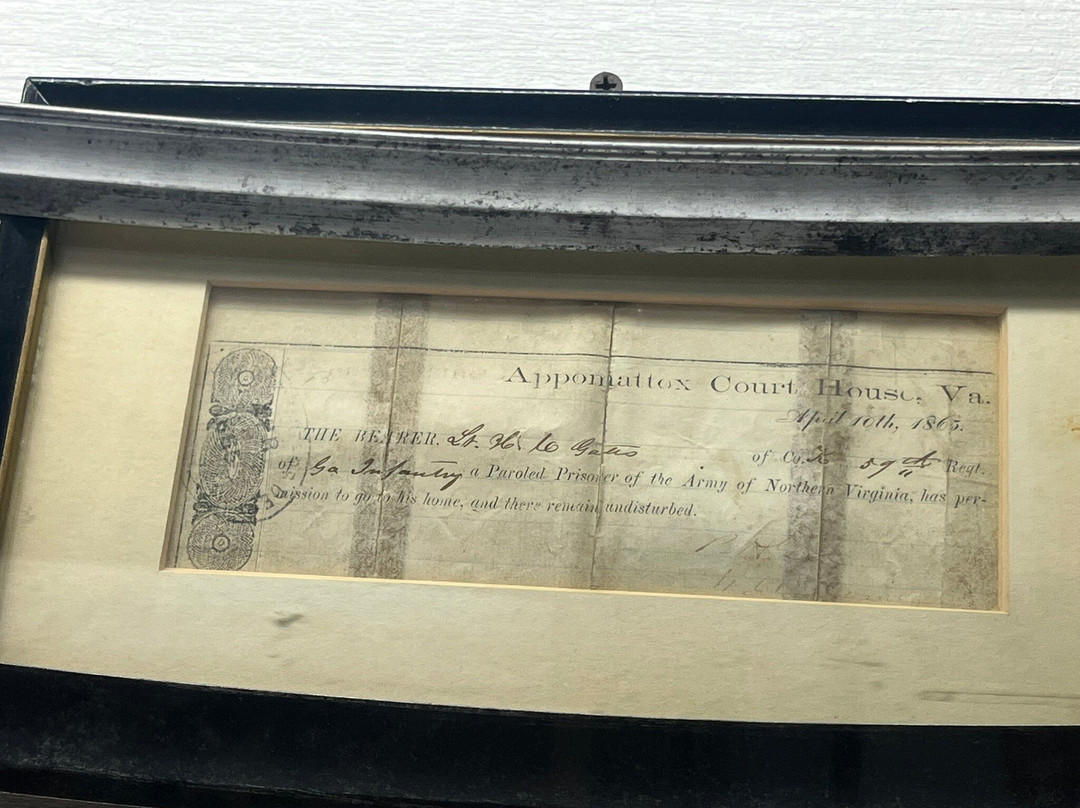 Appomattox Court House, Va.
April 10th, 1865.
THE BEARER, Lt. H. C. Gates of Co. K 59th Regt.
of Ga Infantry a Paroled Prisoner of the Army of Northern Virginia, has per-
mission to go to his home, and there remain undisturbed.